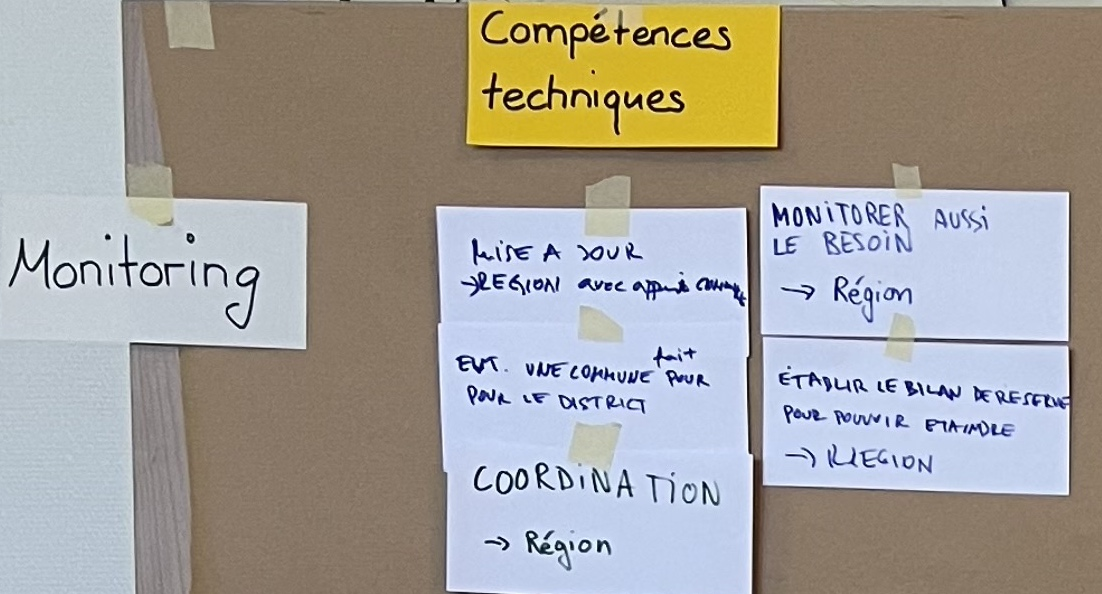 Compétences
techniques
Monitoring
MISE A JOUR
→ REGION avec appui
EVT. UNE COMMUNE fait POUR
POUR LE DISTRICT
COORDINATION
→ Région
MONITORER AUSSI
LE BESOIN
→ Région
ÉTABLIR LE BILAN DE RESERVE
POUR POUVOIR ETAINDRE
→ REGION